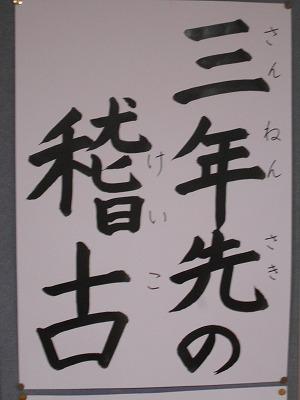 三年先の
さんねんさき
稽古
けいこ